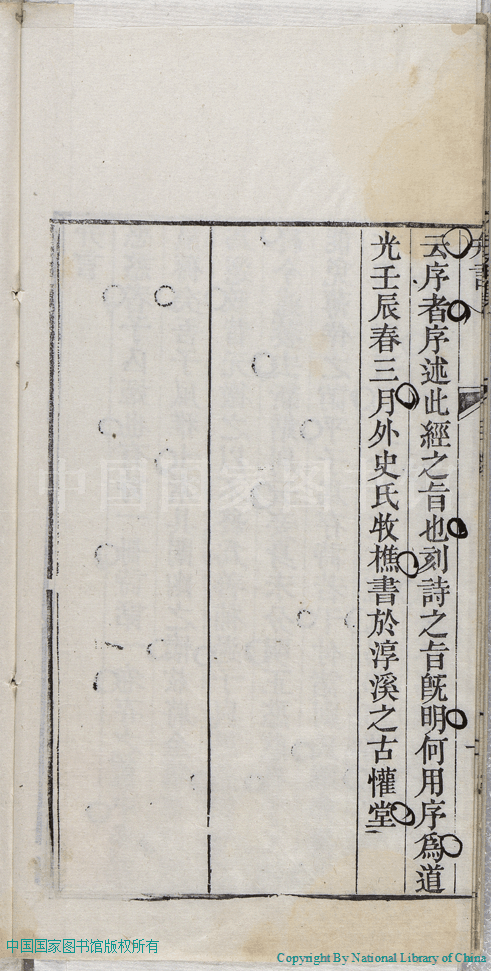 云序者序述此經之旨也刻詩之旨旣明何用序爲道
光壬辰春三月外史氏牧樵書於淳溪之古懽堂
中国国家图
中国国家图书馆版权所有
Copyright By National Library of China